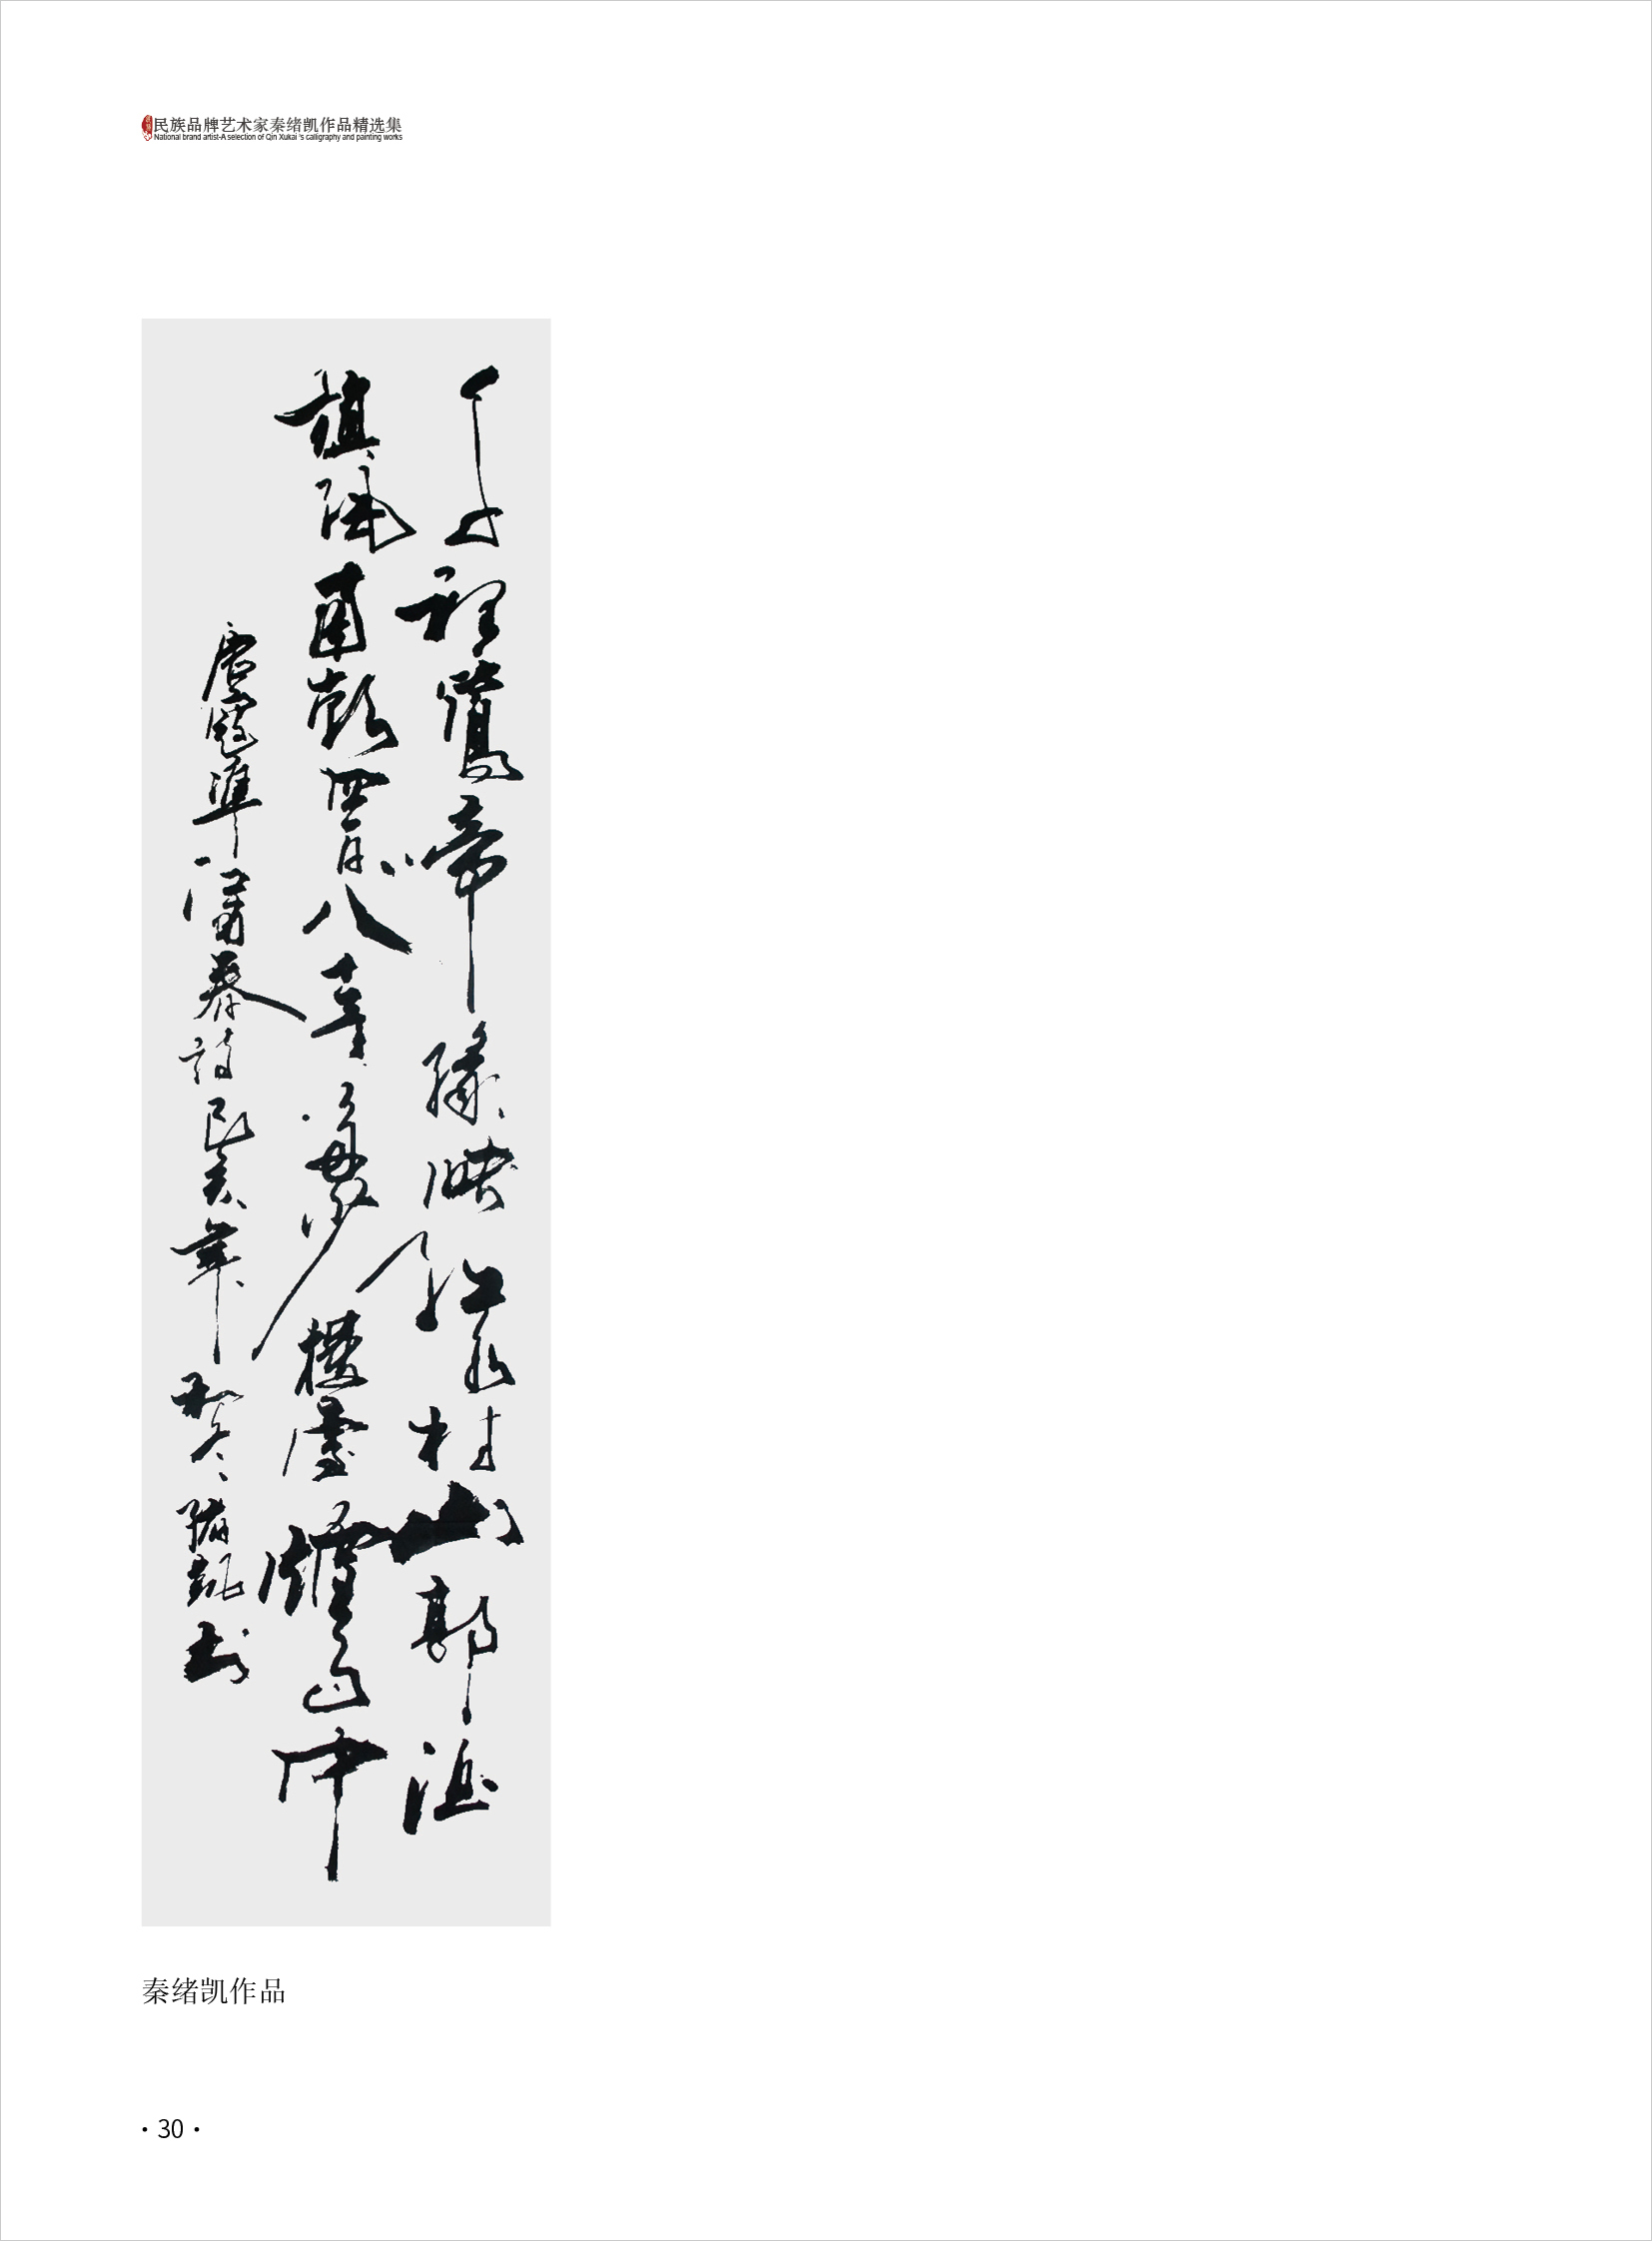 民族品牌艺术家秦绪凯作品精选集
National brand artist-A selection of Qin Xukai 's calligraphy and painting works
千里鶯啼綠映紅水村山郭酒
旗風南朝四百八十寺多少樓臺煙雨中
唐寇準江南春詩己亥年初冬緒凱書
秦绪凯作品
· 30 ·